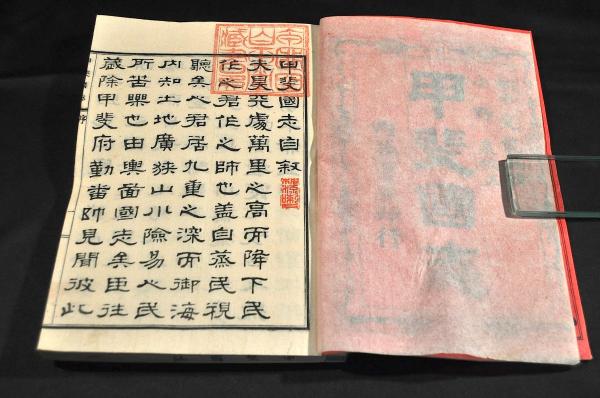 甲斐國志
甲斐國志自叙
夫昊天處萬里之高而降下民
作之君作之師也蓋自蒸民視
聽矣人君居九重之深而御海
内知土地廣狹山川險易人民
所苦樂也由輿啚國志矣臣往
歳除甲斐府勤番帥見聞彼此